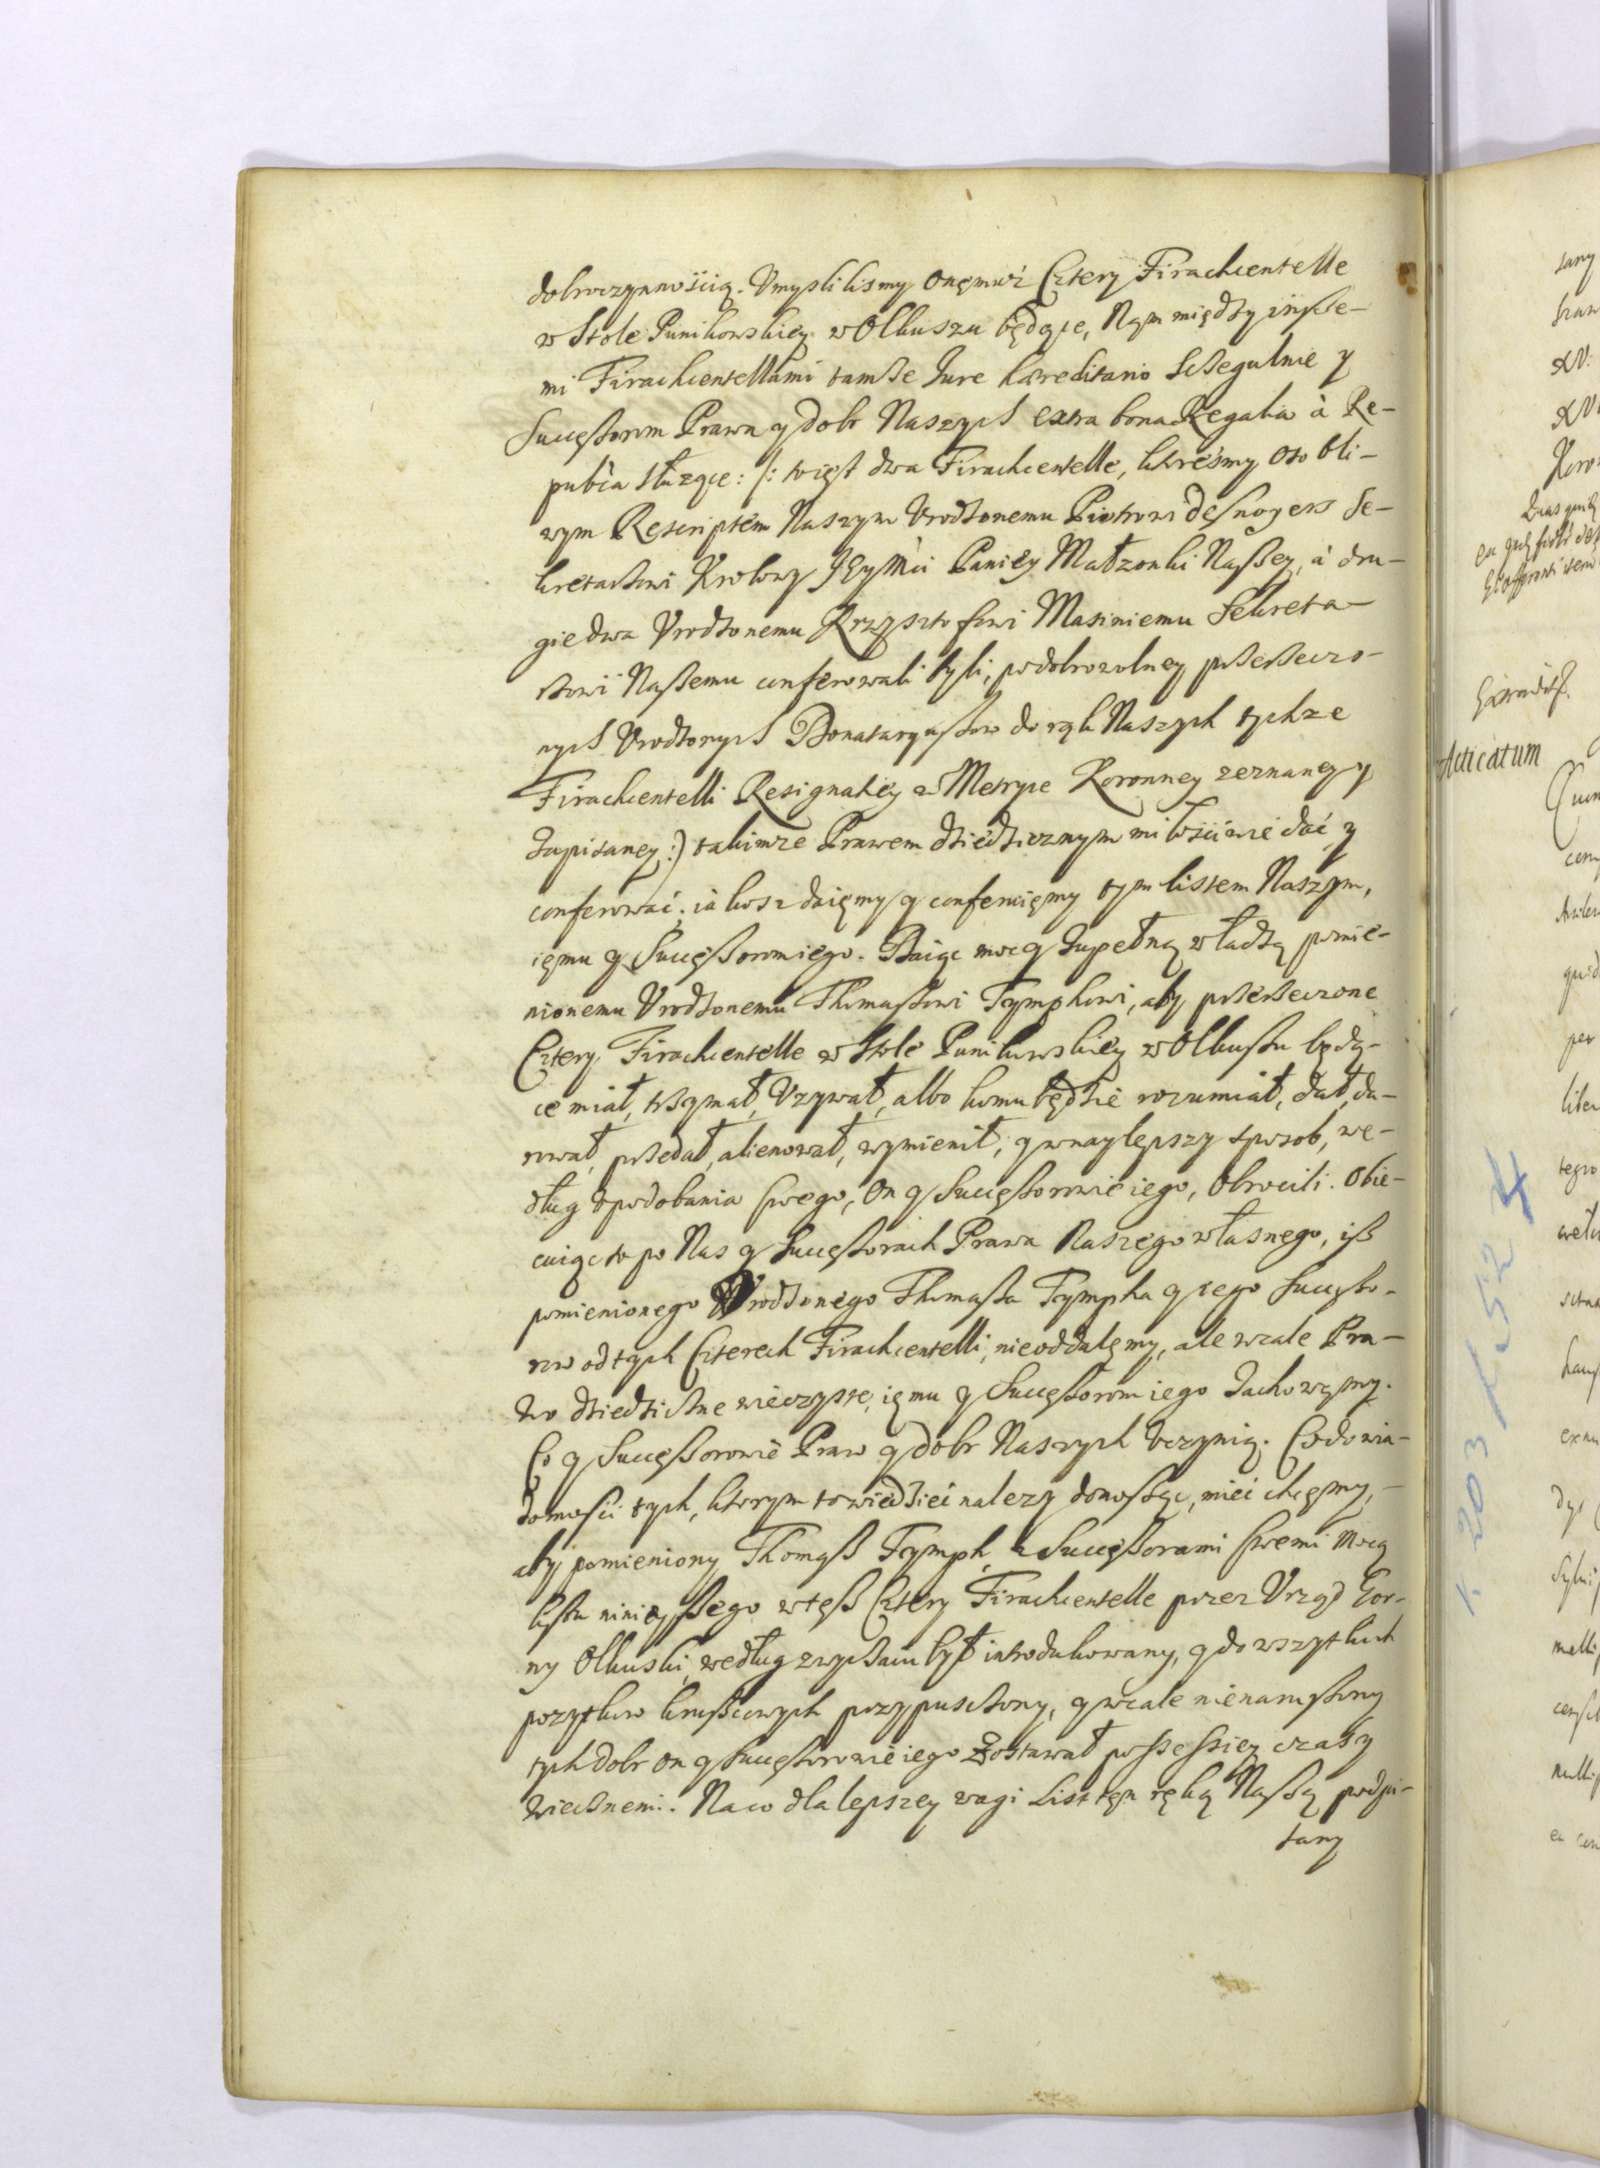 dobroczynnością. Vmyslilismy onęmuż Cztery Firachcentelle
w Stole Punikowskiey w Olkuszu będące, Nąm między inße-
mi Firachcentellami tamże Jure hæreditario Sczegulnie y
Successorom Prawa y dobr Naszych extra bona Regalia à Re-
pubca służące: /: to iest dwa Firachcentelle, ktoreśmy osobli-
wym Rescriptem Naszym Vrodzonemu Piotrowi desnoyers Se-
kretarzowi Krolowy Jey Mci Paniey Małzonki Naßey, à dru-
gie dwa Vrodzonemu Krzysztofowi Masiniemu Sekreta-
rzowi Naßemu conferowali byli, po dobrowolney przerzeczo-
nych Vrodzonych Donataryußow do rąk Naszych tychze
Firachcentelli Resignatiey w Metryce Koronney zeznaney y
Zapisaney :) takimze Prawem dziedzicznym miłościwie dać y
conferować; iakosz daięmy y conferuięmy tym listem Naszym,
ięmu y Successorom iego. Daiąc moc y Zupełną władzą pomie-
nionemu Vrodzonemu Thomaßowi Tymphowi, aby przerzeczone
Cztery Firachcentelle w Stole Punikowskiey w Olkußu będą-
ce miał, trzymał, Vzywał, albo komu będzie rozumiał, dał, da-
rował, przedał, alienował, wymienił, y w naylepszy sposob, we-
dług Vpodobania swego, On y Successorowie iego, Obrocili. Obie-
cuiąc to po Nas y Successorach Prawa Naszego własnego, iß
pomienionego Vrodzonego Thomaßa Tympha y iego Successo-
row od tych Czterech Firachcentelli, nieoddalęmy, ale wcale Pra-
wo dziedziczne wieczyste, ięmu y Successorom iego Zachowęmy.
Co y Successorowie Praw y dobr Naszych Vczynią. Co do wia-
domości tych, ktorym to wiedzieć nalezy donosząc, mieć chcęmy,
aby pomieniony Thomaß Tymph, z Successorami swemi mocą
listu ninieyßego w teß Cztery Firachcentelle przez Vrząd Gor-
ny Olkuski, według zwyczaiu był introdukowany, y do wszytkich
pozytkow krußcowych przypusczony, y wcale nienaruszony
tych dobr on y Successorowie iego Zostawał possessiey czasy
Wiecznemi. Na co dla lepszey wagi List ten ręką Naßą podpi-
sany
Acticatum